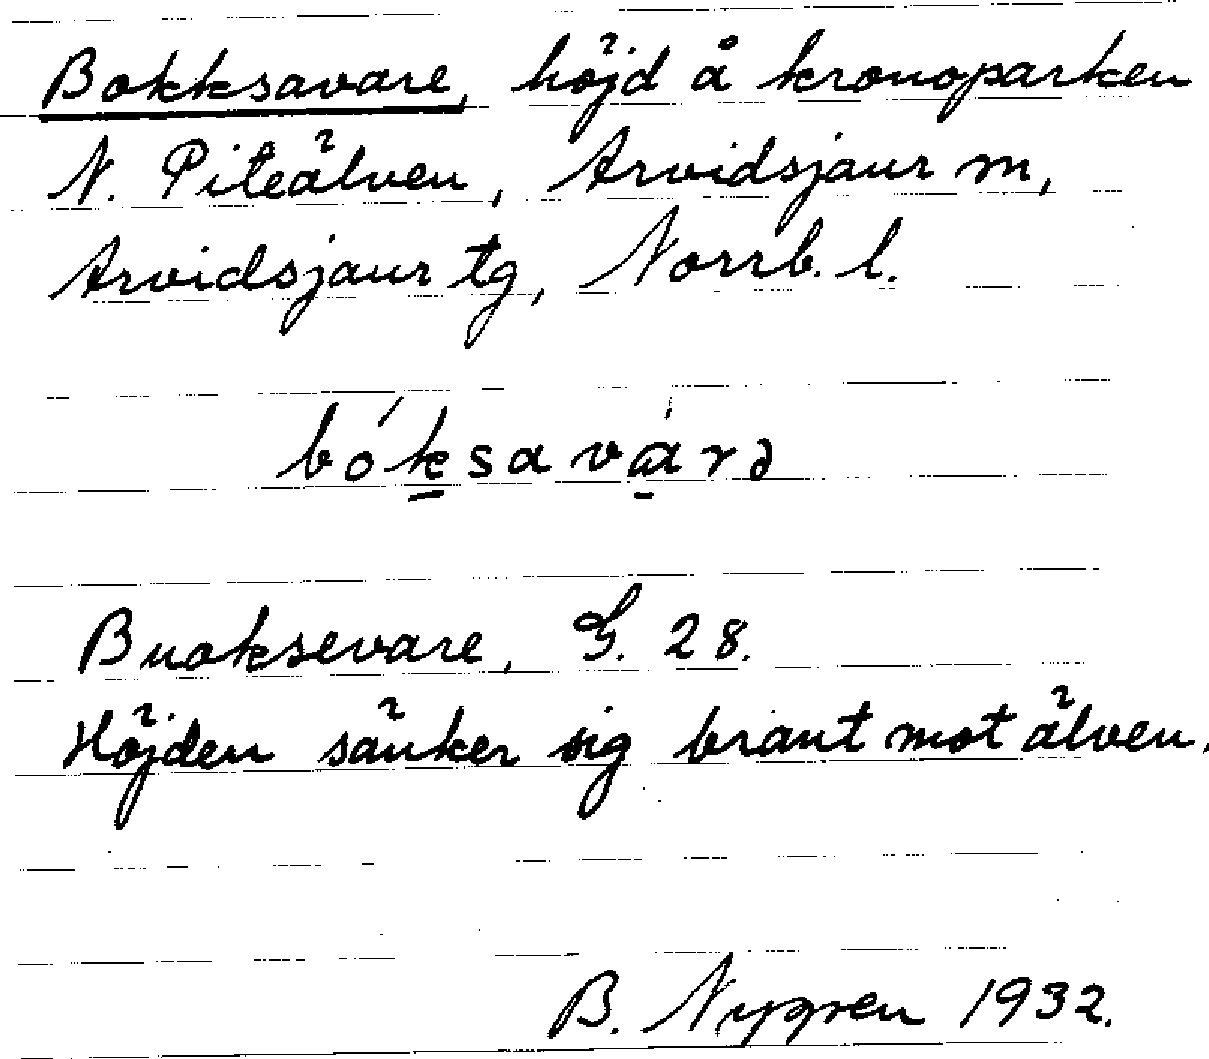 Bokksavare, höjd å kronoparken
N. Piteälven, Arvidsjaur m,
Arvidsjaur tg, Norrb. l.
bó́ksavàrə
Buoksevare, G. 28.
Höjden sänker sig brant mot älven.
B. Nygren 1932.